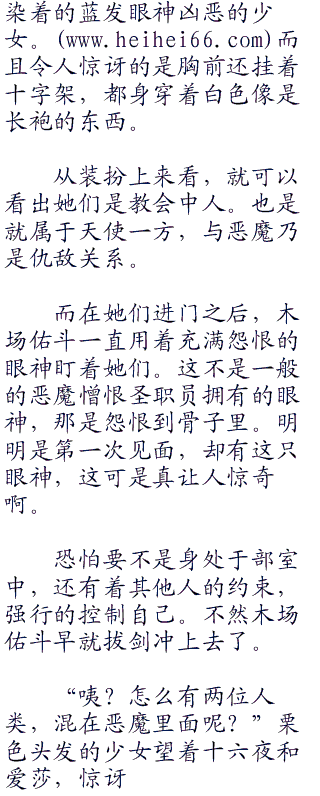 染着的蓝发眼神凶恶的少
女。(www.heihei66.com)而
且令人惊讶的是胸前还挂着
十字架，都身穿着白色像是
长袍的东西。
从装扮上来看，就可以
看出她们是教会中人。也是
就属于天使一方，与恶魔乃
是仇敌关系。
而在她们进门之后，木
场佑斗一直用着充满怨恨的
眼神盯着她们。这不是一般
的恶魔憎恨圣职员拥有的眼
神，那是怨恨到骨子里。明
明是第一次见面，却有这只
眼神，这可是真让人惊奇
啊。
恐怕要不是身处于部室
中，还有着其他人的约束，
强行的控制自己。不然木场
佑斗早就拔剑冲上去了。
“咦？怎么有两位人
类，混在恶魔里面呢？”栗
色头发的少女望着十六夜和
爱莎，惊讶